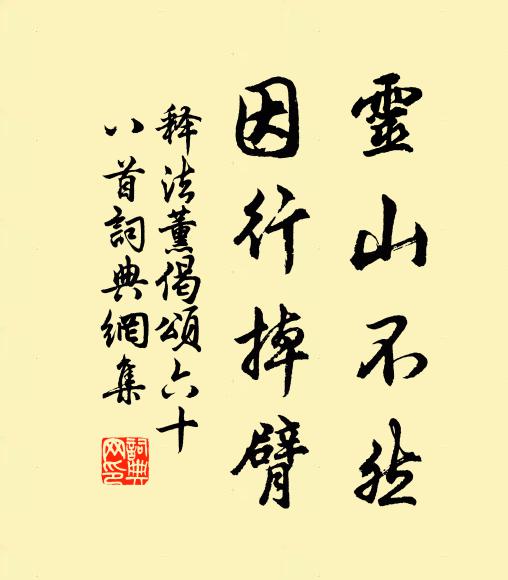 靈山不然
因行掉臂
释法薰偈頌六十
八首詞典網集
詞典
网印